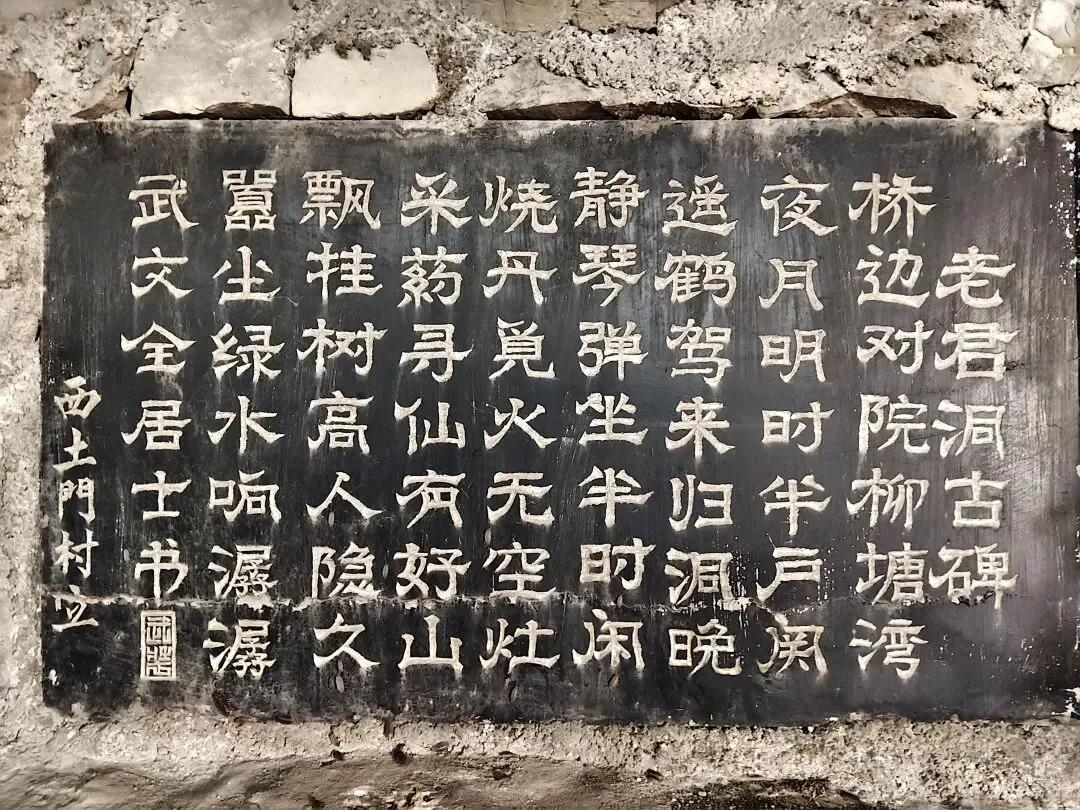 老君洞古碑
桥边对院柳塘湾
夜月明时半户関
遥鹤驾来归洞晚
静琴弹坐半时闲
烧丹觅火无空灶
采药寻仙有好山
飘挂树高人隐久
嚣尘绿水响潺潺
武文全居士书
西土門村立